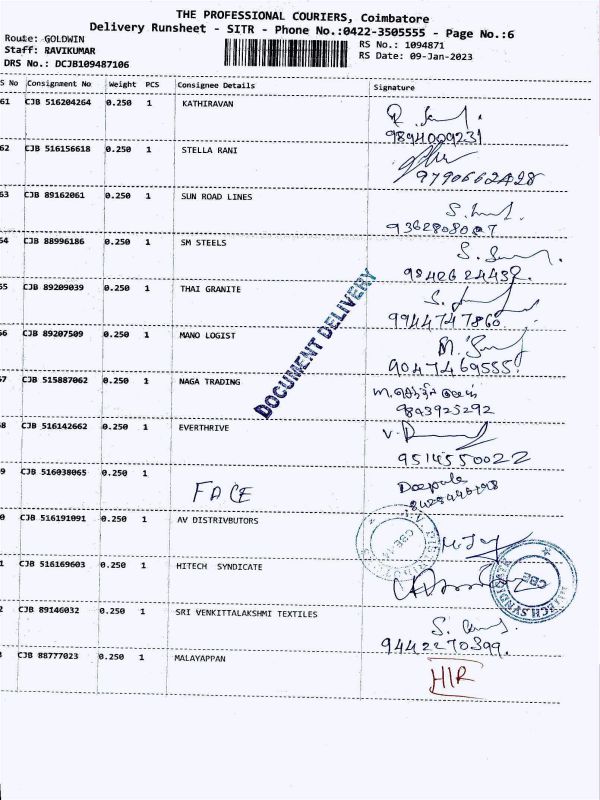 THE PROFESSIONAL COURIERS, Coimbatore
Delivery Runsheet - SITR - Phone No.:0422-3505555 - Page No.:6
Route: GOLDWIN
Staff: RAVIKUMAR
DRS No.: DCJB109487106
RS No.: 1094871
RS Date: 09-Jan-2023
S No Consignment No Weight PCS Consignee Details Signature
61 CJB 516204264 0.250 1 KATHIRAVAN
9894009231
62 CJB 516156618 0.250 1 STELLA RANI
9790662428
63 CJB 89162061 0.250 1 SUN ROAD LINES
54 CJB 88996186 0.250 1 SM STEELS
9842624432
55 CJB 89209039 0.250 1 THAI GRANITE
9944747860
66 CJB 89207509 0.250 1 MANO LOGIST
9047469555
DOCUMENT DELIVERY
67 CJB 515887062 0.250 1 NAGA TRADING
9843925292
8 CJB 516142662 0.250 1 EVERTHRIVE
9514550022
9 CJB 516038065 1
FACE
Deepula
0 CJB 516191091 0.250 1 AV DISTRIVBUTORS
1 CJB 516169603 0.250 1 HITECH SYNDICATE
2 CJB 89146032 0.250 1 SRI VENKITTALAKSHMI TEXTILES
9442270399
3 CJB 88777023 0.250 1 MALAYAPPAN
HIR